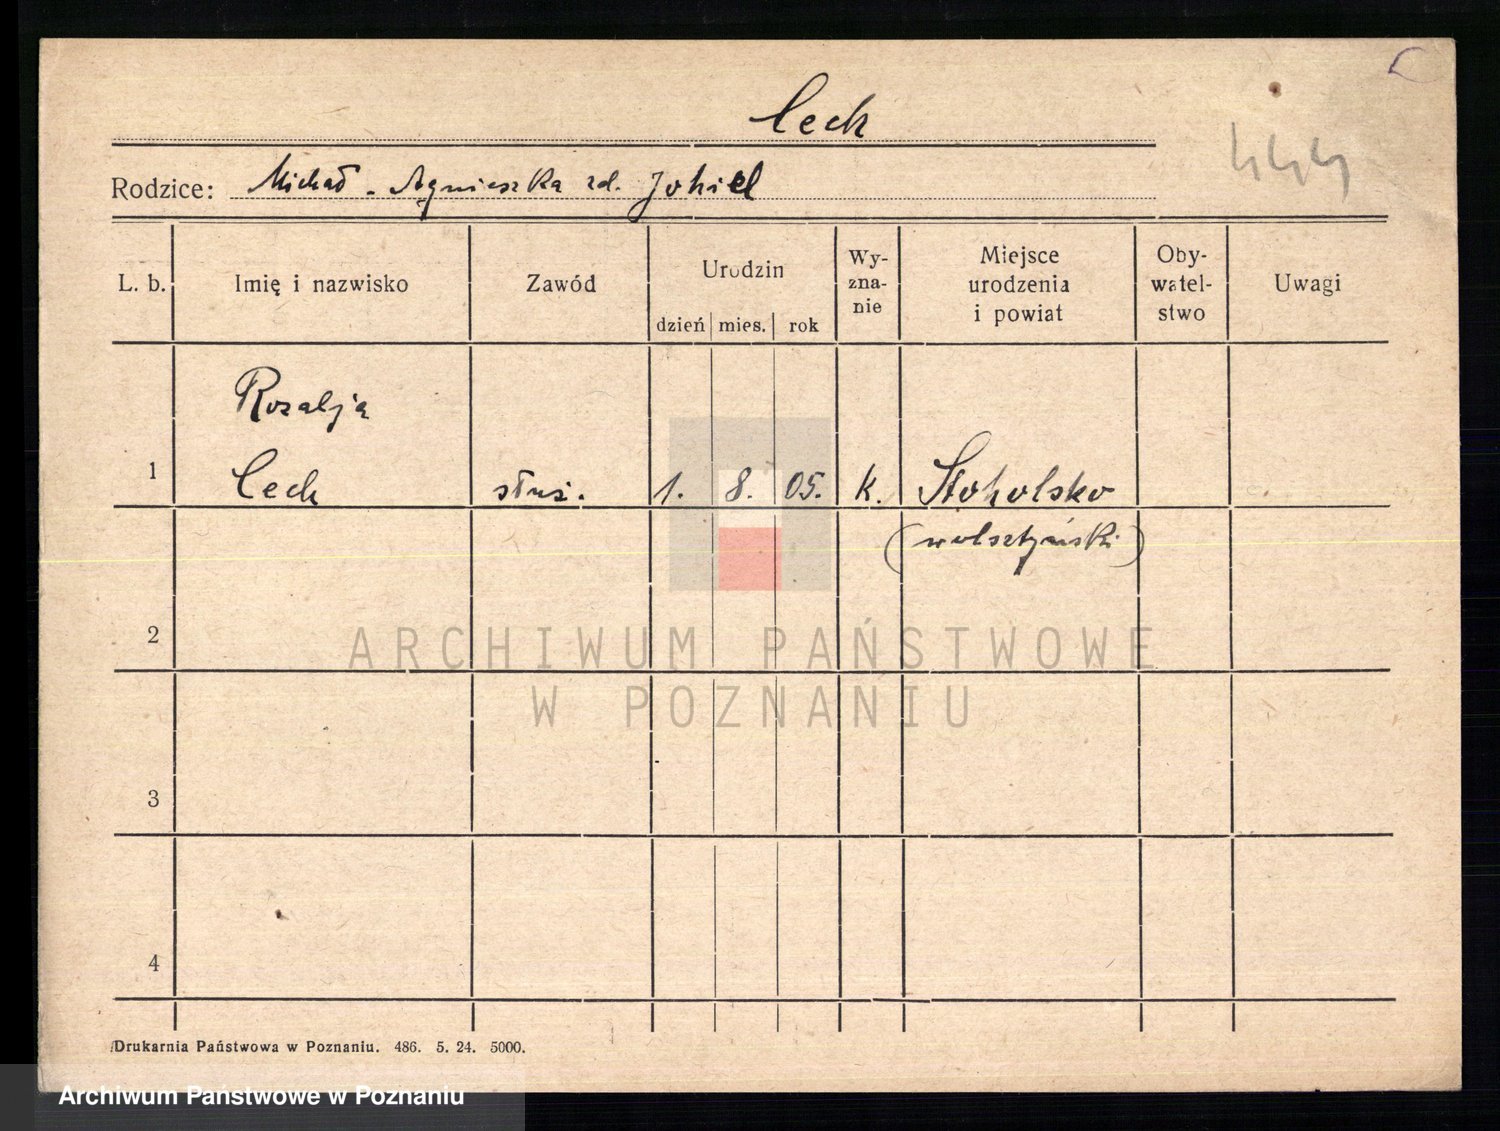 Cech
Rodzice: Michał - Agnieszka zd. Johiel
L. b. Imię i nazwisko Zawód Urodzin dzień mies. rok Wy-zna-nie Miejsce urodzenia i powiat Oby-watel-stwo Uwagi
Rozalja
1 Cech służ. 1. 8. 05. k. Stokolsko
(wolsztyński)
2
ARCHIWUM PAŃSTWOWE
W POZNANIU
3
4
Drukarnia Państwowa w Poznaniu. 486. 5. 24. 5000.
Archiwum Państwowe w Poznaniu